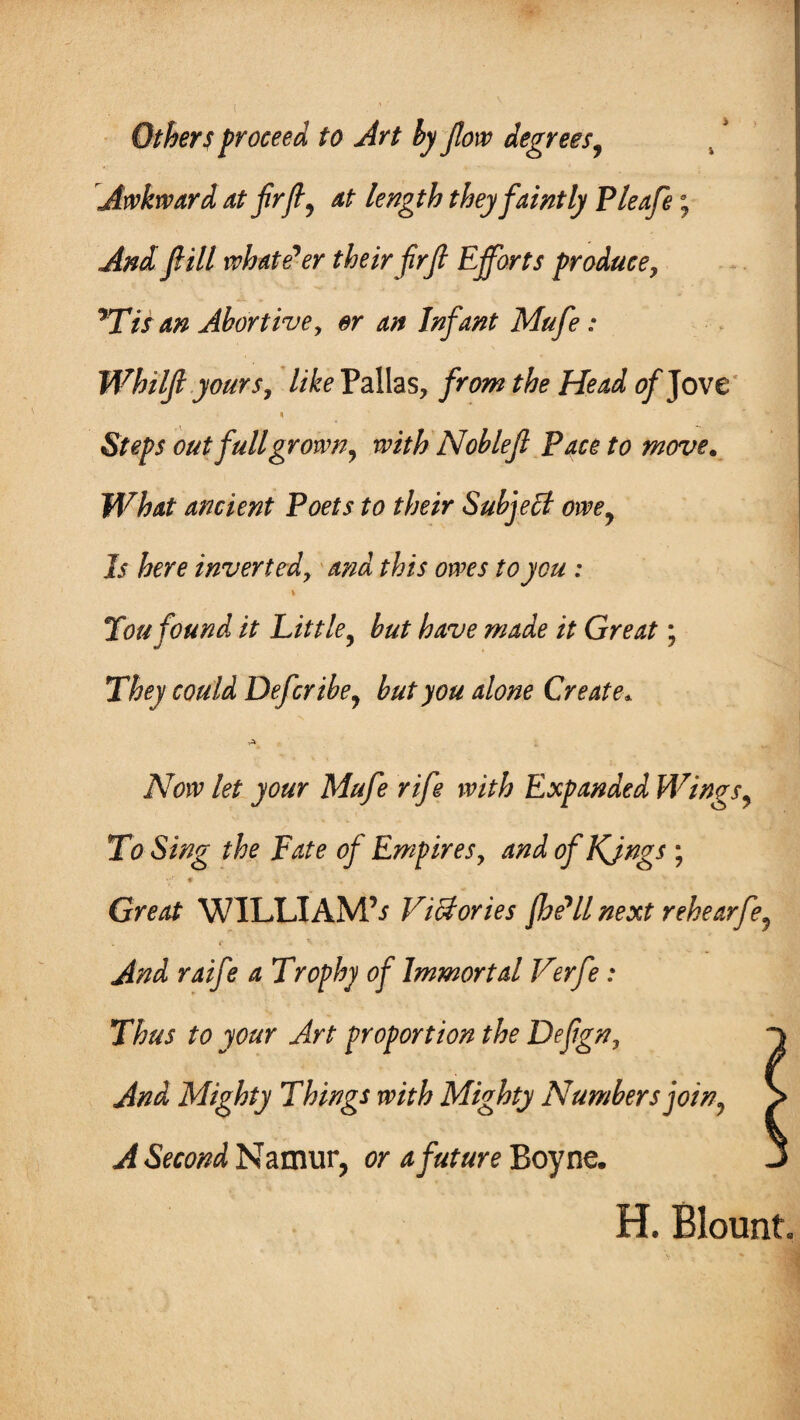 Others proceed to Art by ſlow degrees,
Awkward at firſt, at length they faintly Pleaſe;
And ſtill whate'er their firſt Efforts produce,
'Tis an Abortive, or an Infant Muſe:
Whilſt yours, like Pallas, from the Head of Jove
Steps out full grown, with Nobleſt Pace to move.
What ancient Poets to their Subject owe,
Is here inverted, and this owes to you:
You found it Little, but have made it Great;
They could Deſcribe, but you alone Create.
Now let your Muſe riſe with Expanded Wings,
To Sing the Fate of Empires, and of Kings;
Great WILLIAM's Victories ſhe'll next rehearſe,
And raiſe a Trophy of Immortal Verſe:
Thus to your Art proportion the Deſign,
And Mighty Things with Mighty Numbers join,
A Second Namur, or a future Boyne.
H. Blount.